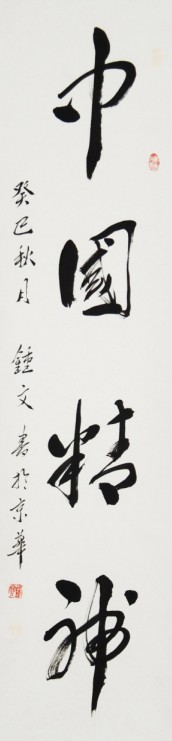 中國精神
癸巳秋月 鍾文書於京華